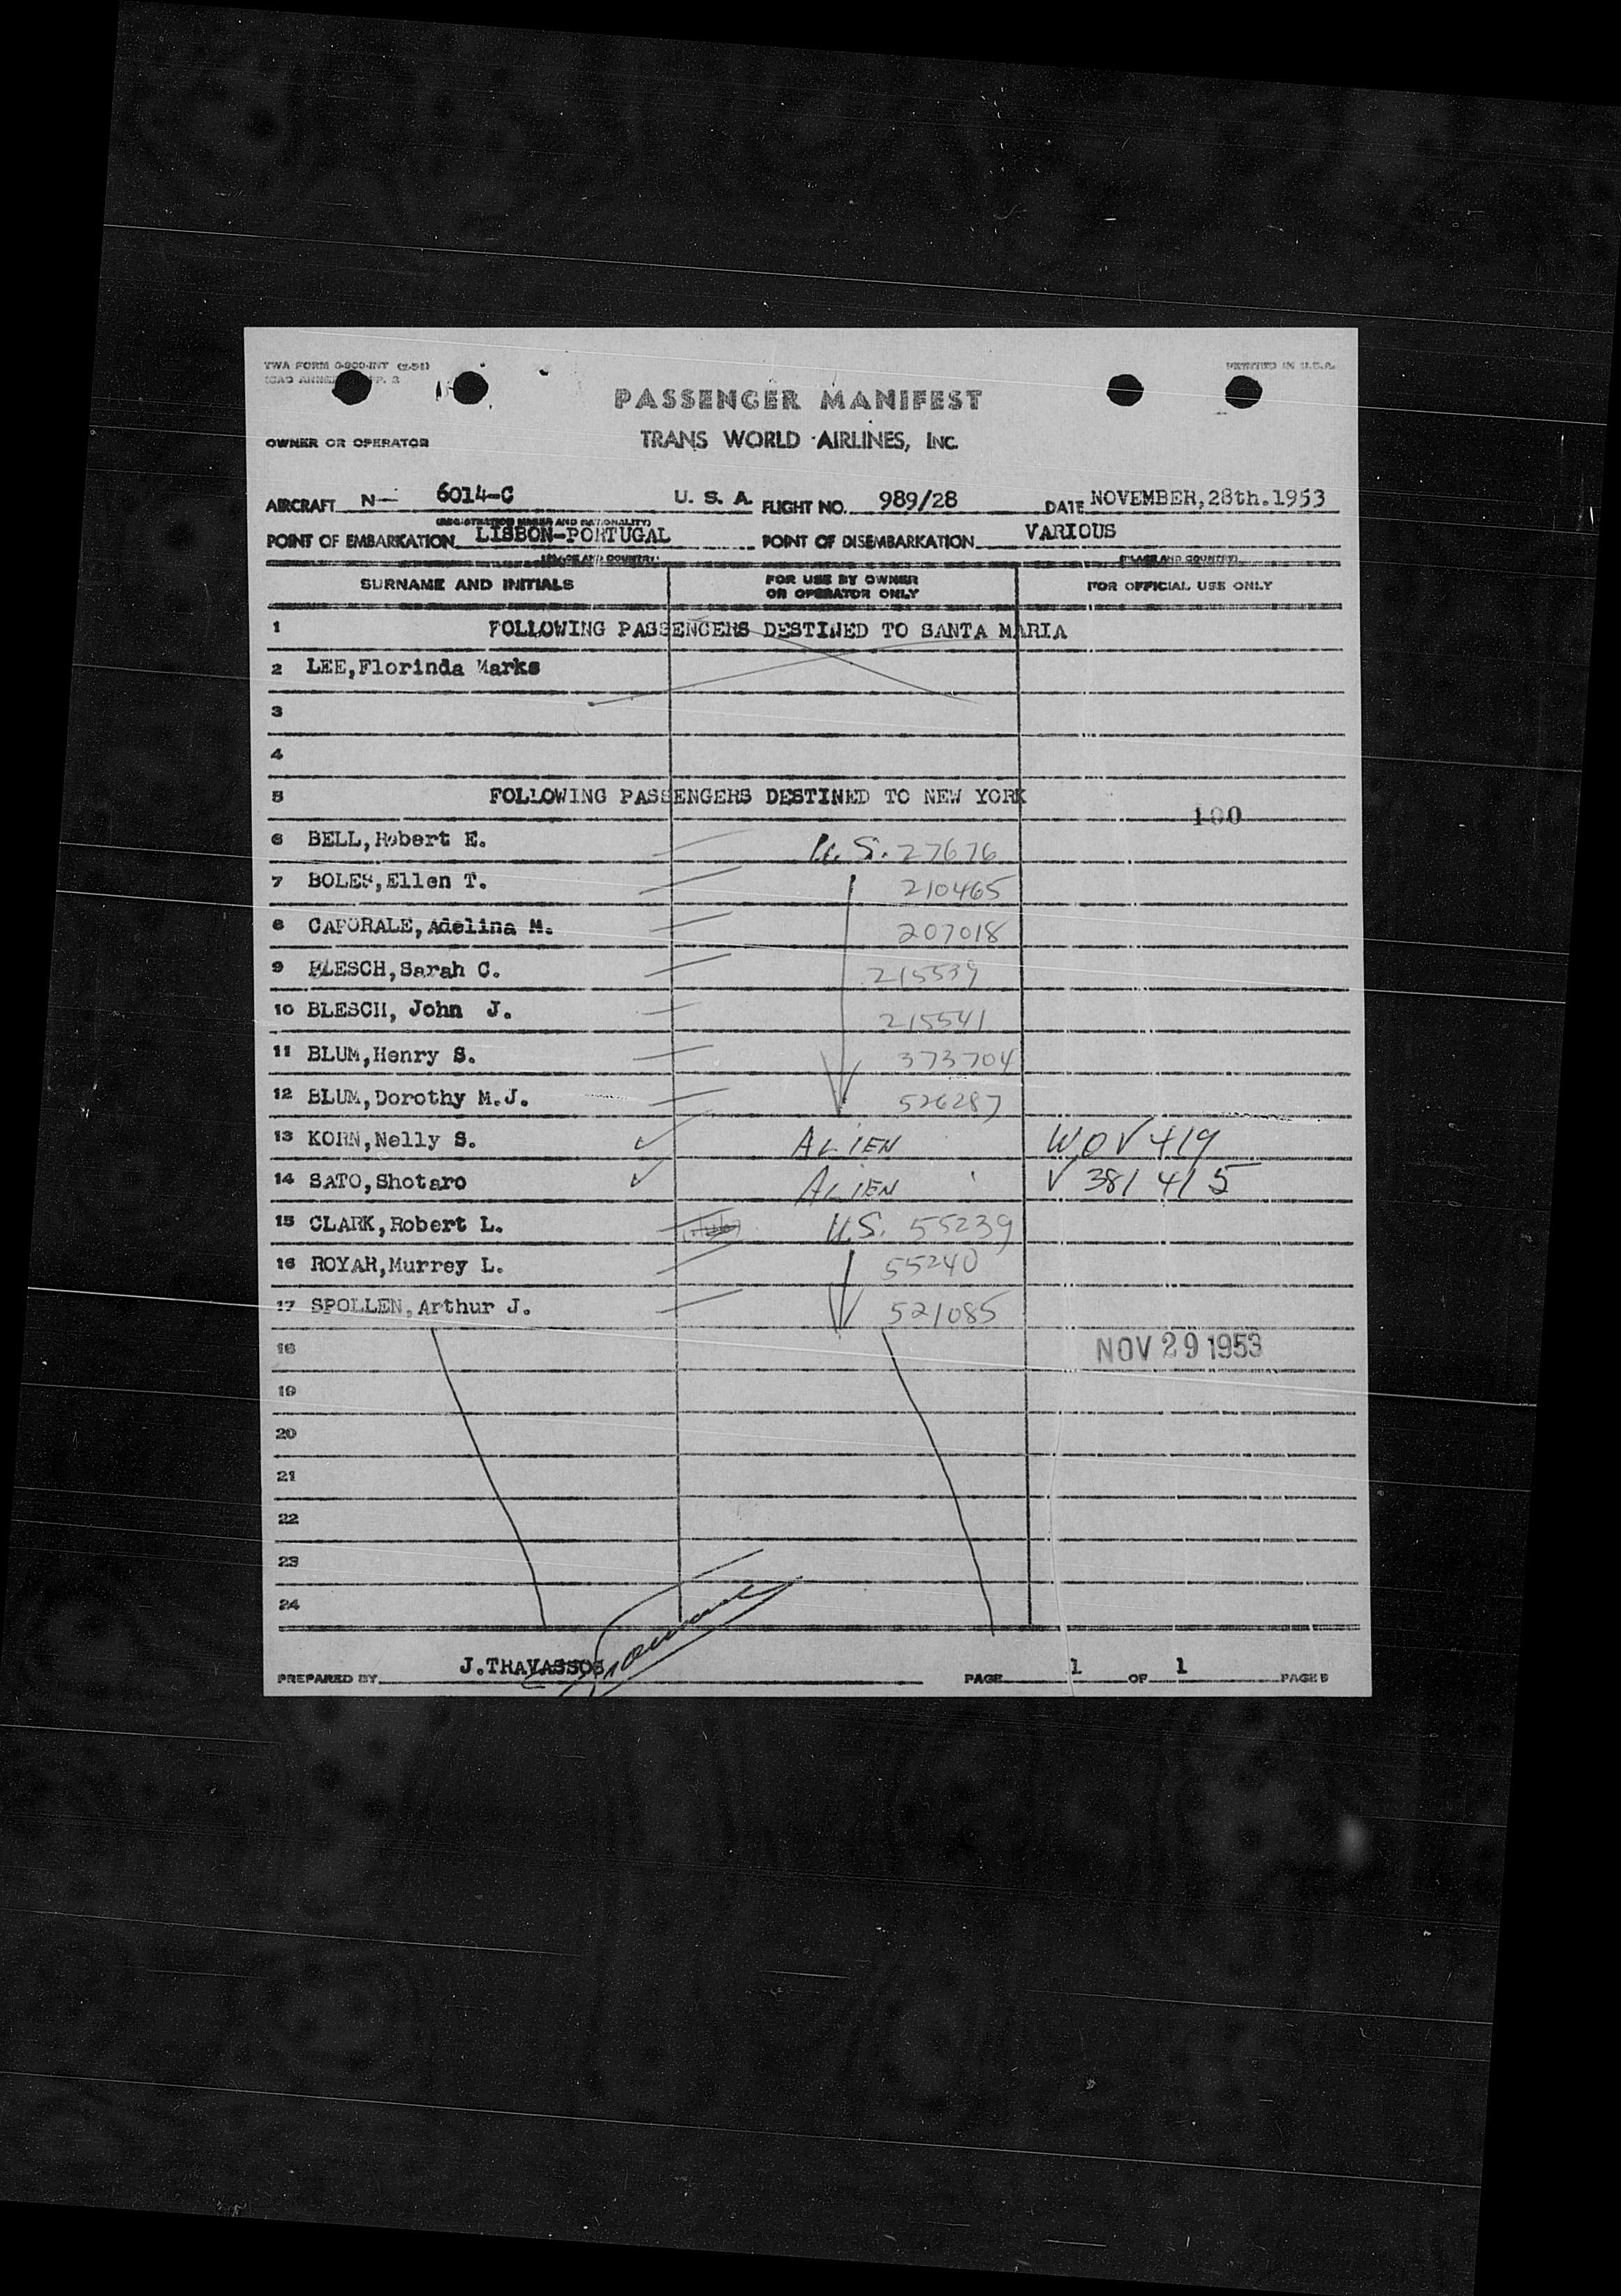 TWA FORM 0-900-INT (2-51)
PRINTED IN U.S.A.
ICAO ANNEX
PASSENGER MANIFEST
OWNER OR OPERATOR
TRANS WORLD AIRLINES, INC.
AIRCRAFT N- 6014-C U. S. A. FLIGHT NO. 989/28 DATE NOVEMBER,28th.1953
(REGISTRATION MARKS AND NATIONALITY)
POINT OF EMBARKATION LISBON-PORTUGAL POINT OF DISEMBARKATION VARIOUS
(PLACE AND COUNTRY) (PLACE AND COUNTRY)
SURNAME AND INITIALS FOR USE BY OWNER OR OPERATOR ONLY FOR OFFICIAL USE ONLY
1 FOLLOWING PASSENGERS DESTINED TO SANTA MARIA
2 LEE,Florinda Marks
3
4
5 FOLLOWING PASSENGERS DESTINED TO NEW YORK
100
6 BELL,Robert E. U.S. 27676
7 BOLES,Ellen T. 210465
8 CAPORALE,Adelina M. 207018
9 BLESCH,Sarah C. 215539
10 BLESCH, John J. 215541
11 BLUM,Henry S. 373704
12 BLUM,Dorothy M.J. 526287
13 KORN,Nelly S. ✓ ALIEN W.O V 419
14 SATO,Shotaro ✓ ALIEN V 381 415
15 CLARK,Robert L. U.S. 55239
16 ROYAR,Murrey L. 55240
17 SPOLLEN,Arthur J. 521085
18 NOV 29 1953
19
20
21
22
23
24
PREPARED BY J.TRAVASSOS PAGE 1 OF 1 PAGES